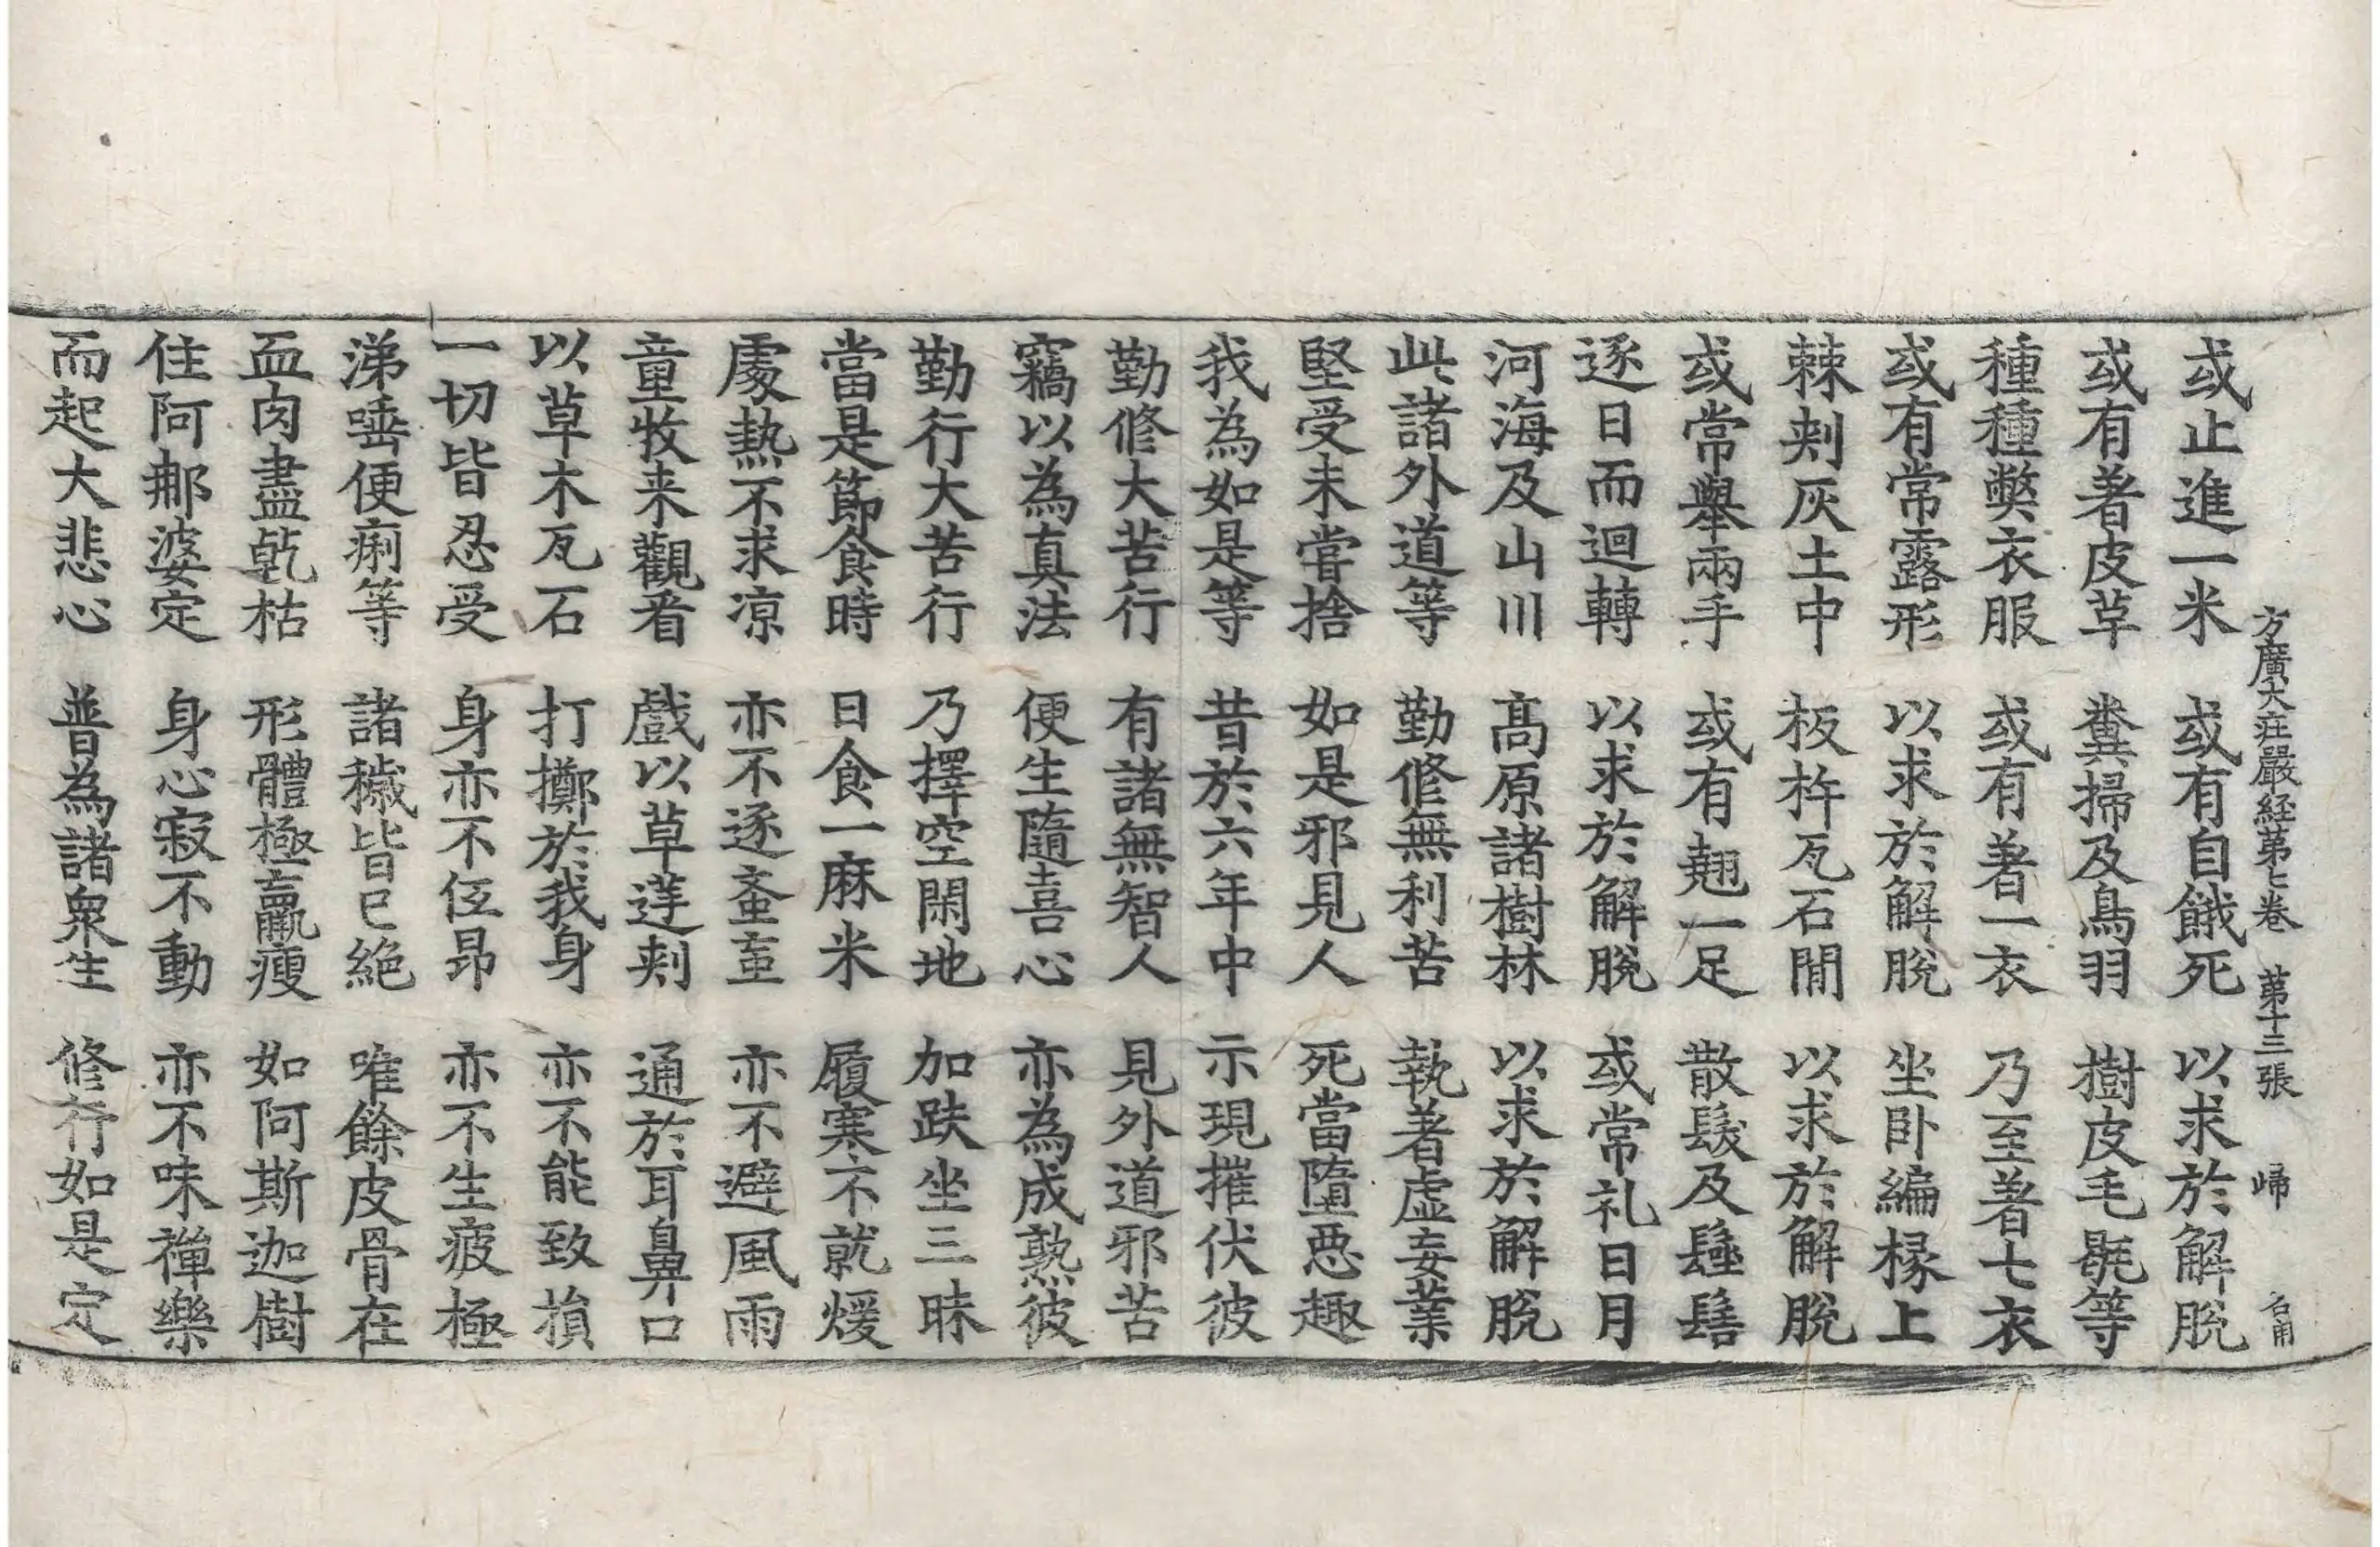 方廣大莊嚴経苐七卷 苐十三張 歸
或止進一米 或有自餓死 以求於解脫
或有著皮草 糞掃及鳥羽 樹皮毛毾等
種種獘衣服 或有著一衣 乃至著七衣
或有常露形 以求於解脫 坐卧編椽上
棘刺灰土中 板杵瓦石閒 以求於解脫
或常舉兩手 或有翹一足 散髮及髽髻
逐日而迴轉 以求於解脫 或常礼日月
河海及山川 髙原諸樹林 以求於解脫
此諸外道等 勤修無利苦 執著虛妄業
堅受未嘗捨 如是邪見人 死當墮惡趣
我為如是等 昔於六年中 示現摧伏彼
勤修大苦行 有諸無智人 見外道邪苦
竊以為真法 便生隨喜心 亦為成熟彼
勤行大苦行 乃擇空閑地 加趺坐三昧
當是節食時 日食一麻米 履寒不就煖
處熱不求涼 亦不逐蚉䖟 亦不避風雨
童牧来觀看 戲以草莛刺 通於耳鼻口
以草木瓦石 打擲於我身 亦不能致損
一切皆忍受 身亦不低昂 亦不生疲極
涕唾便痢等 諸穢皆已絕 唯餘皮骨在
血肉盡乾枯 形體極羸瘦 如阿斯迦樹
住阿那婆定 身心寂不動 亦不味禪樂
而起大悲心 普為諸衆生 修行如是定